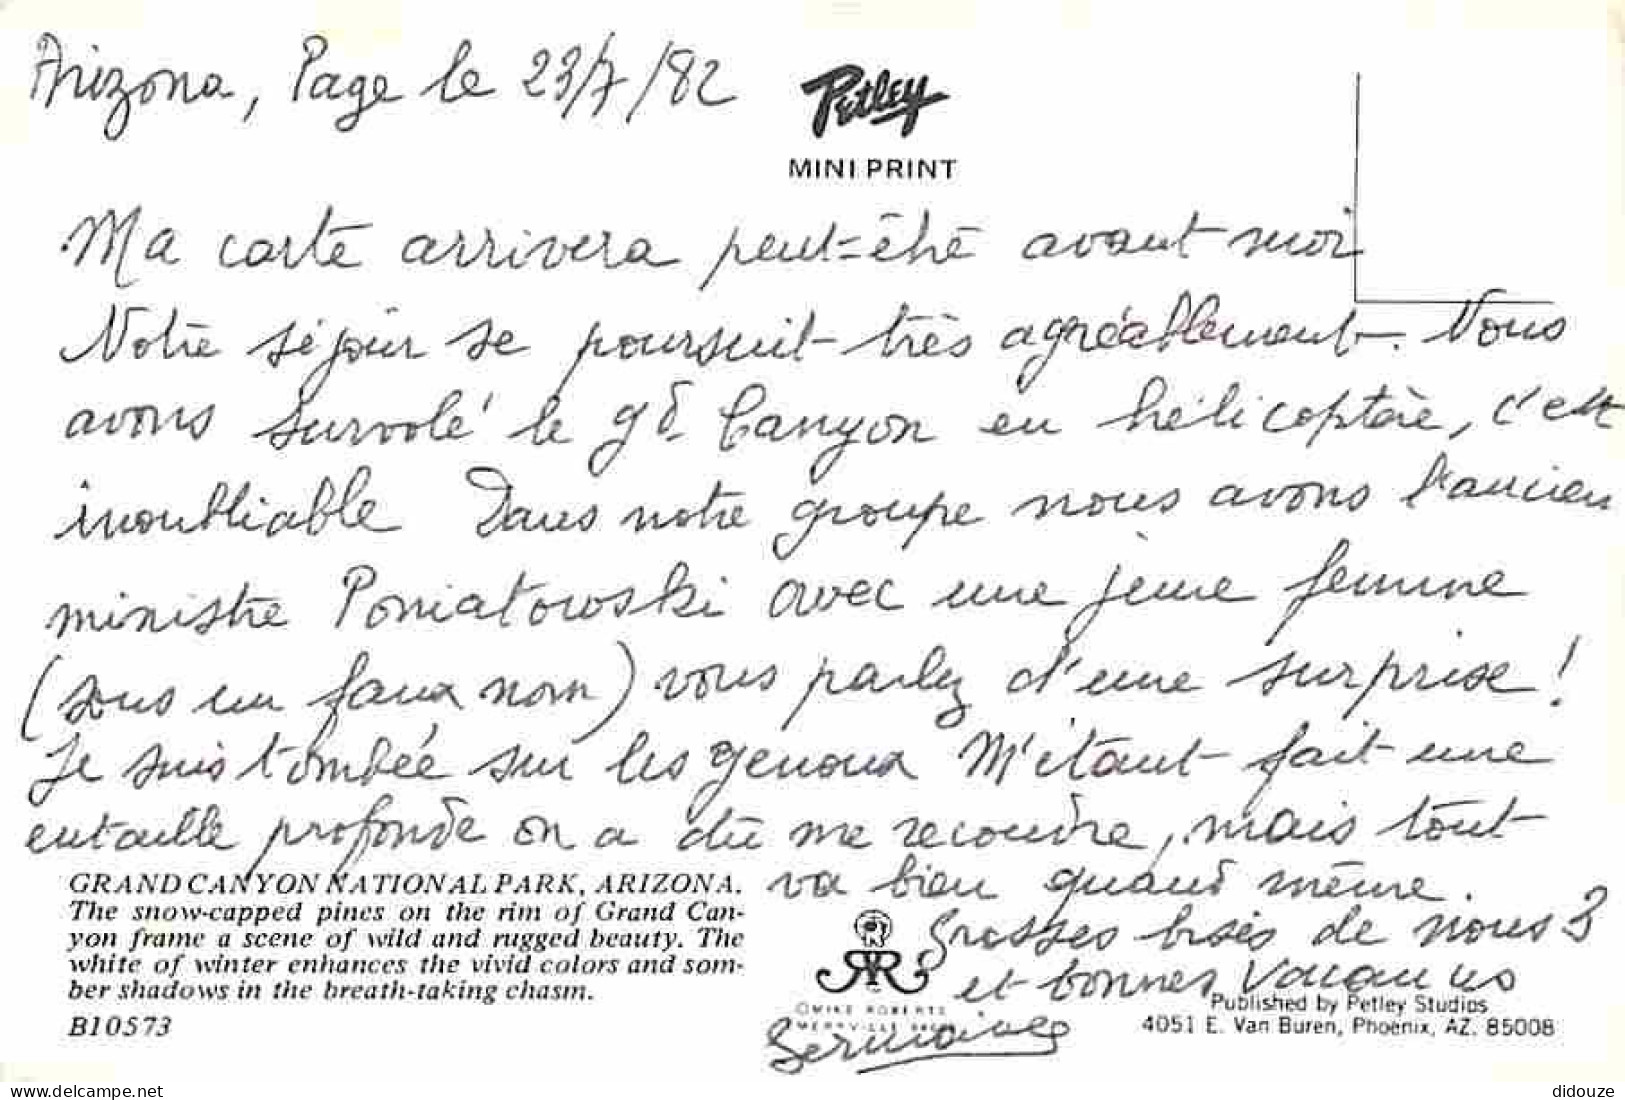 Arizona, Page le 23/7/82
Petley
MINI PRINT
Ma carte arrivera peut-être avant moi
Notre séjour se poursuit très agréablement. Nous
avons survolé le gd Canyon en hélicoptère, c'est
inoubliable Dans notre groupe nous avons l'ancien
ministre Poniatowski avec une jeune femme
(sous un faux nom) vous parlez d'une surprise!
Je suis tombée sur les genoux M'étant fait une
entaille profonde on a dû me recoudre, mais tout
va bien quand même.
Grosses bises de nous 3
et bonnes vacances
Germaine
GRAND CANYON NATIONAL PARK, ARIZONA.
The snow-capped pines on the rim of Grand Can-
yon frame a scene of wild and rugged beauty. The
white of winter enhances the vivid colors and som-
ber shadows in the breath-taking chasm.
B10573
©MIKE ROBERTS
Published by Petley Studios
4051 E. Van Buren, Phoenix, AZ. 85008
https://www.delcampe.net
didouze